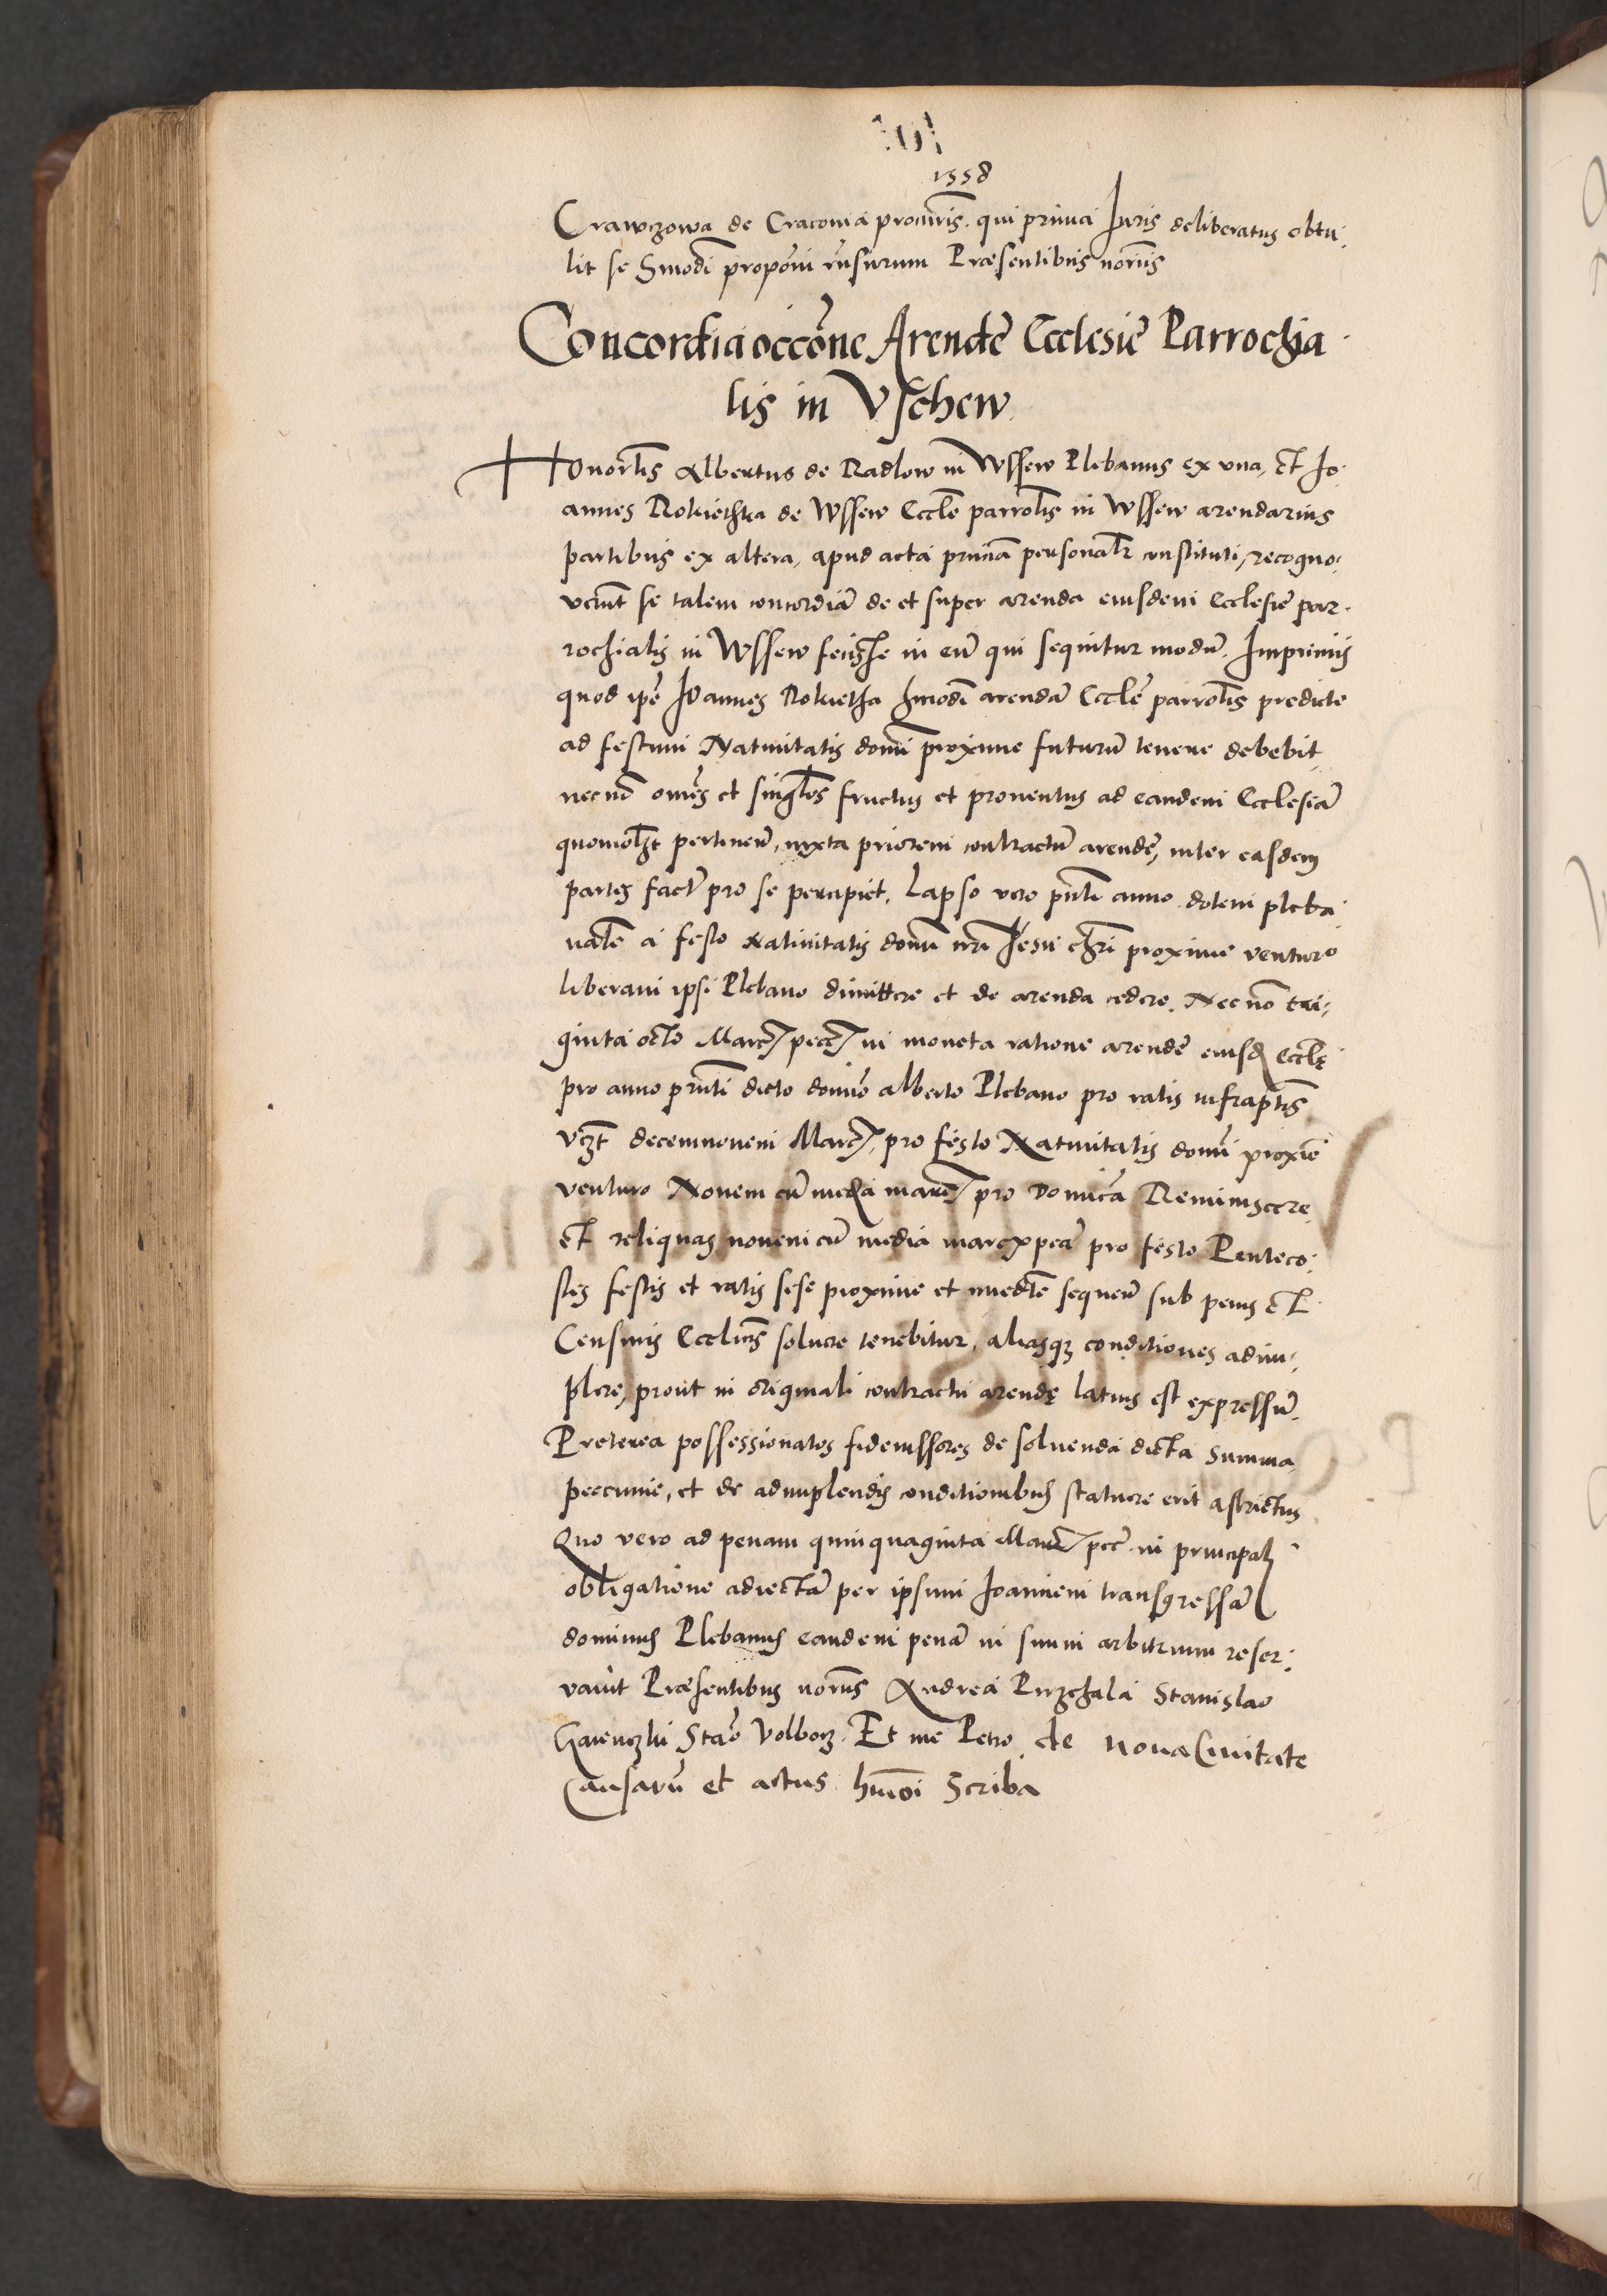 1558
Crawczowa de Cracovia procuris. qui prima Iuris deliberatus obtu
lit se Hmodi proponi rnsurum Præsentibus noriis
Concordia occone Arende Ecclesie Parrochia
lis in Vschew
Honorlis Albertus de Radlow in Wssew Plebanus ex vna, et Io
annes Rokiethka de Wssew Eccle parrolis in Wssew arendarius
partibus ex altera, apud acta princia personalr constituti, recogno
verunt se talem concordia de et super arenda eiusdem Ecclesie par
rochialis in Wssew fecisse in eu qui sequitur modu. Imprimis
quod ipe Ioannes Rokietha hmodi arenda Eccle parrolis predicte
ad festum Natiuitatis domi proxime futuru tenere debebit
necno omes et singlos fructus et prouentus ad eandem Ecclesia
quomolzt pertinen, iuxta priorem contractu arende, inter easdem
partes factu pro se percipiet. Lapso vero pnti anno dotem pleba
nale a festo Natiuitatis domi nri Iesu chri proxime venturo
liberam ipsi Plebano dimittere et de arenda cedere. Necno tri
ginta octo Marc pecc in moneta ratione arende eiusd Eccle
pro anno pnti dicto domino alberto Plebano pro ratis infraptis
vzt decemnouem Marc, pro festo Natiuitatis domi proxie
venturo Nouem cu media marc pro Domica Reminiscere
et reliquas nouem cu media marc pec pro festo Penteco
stes festis et ratis sese proxime et imedte sequen sub penis et
Censuris Eccliis soluere tenebitur, aliasqz conditiones adim
plere, prout in originali contractu arende latius est expressu
Preterea possessionatos fideiussores de soluenda dicta summa
peccunie, et de adimplendis conditionibus statuere erit astrictus
Quo vero ad penam quinquaginta Marc pec in principali
obligatione adiecta per ipsum Ioannem transgressa
dominus Plebanus eandem pena in suum arbitrium reser
vauit Præsentibus noriis Andrea Przechala Stanislao
Gaienczki Stao Volborz. Et me Petro de Noua Ciuitate
Causaru et actus hmoi Scriba